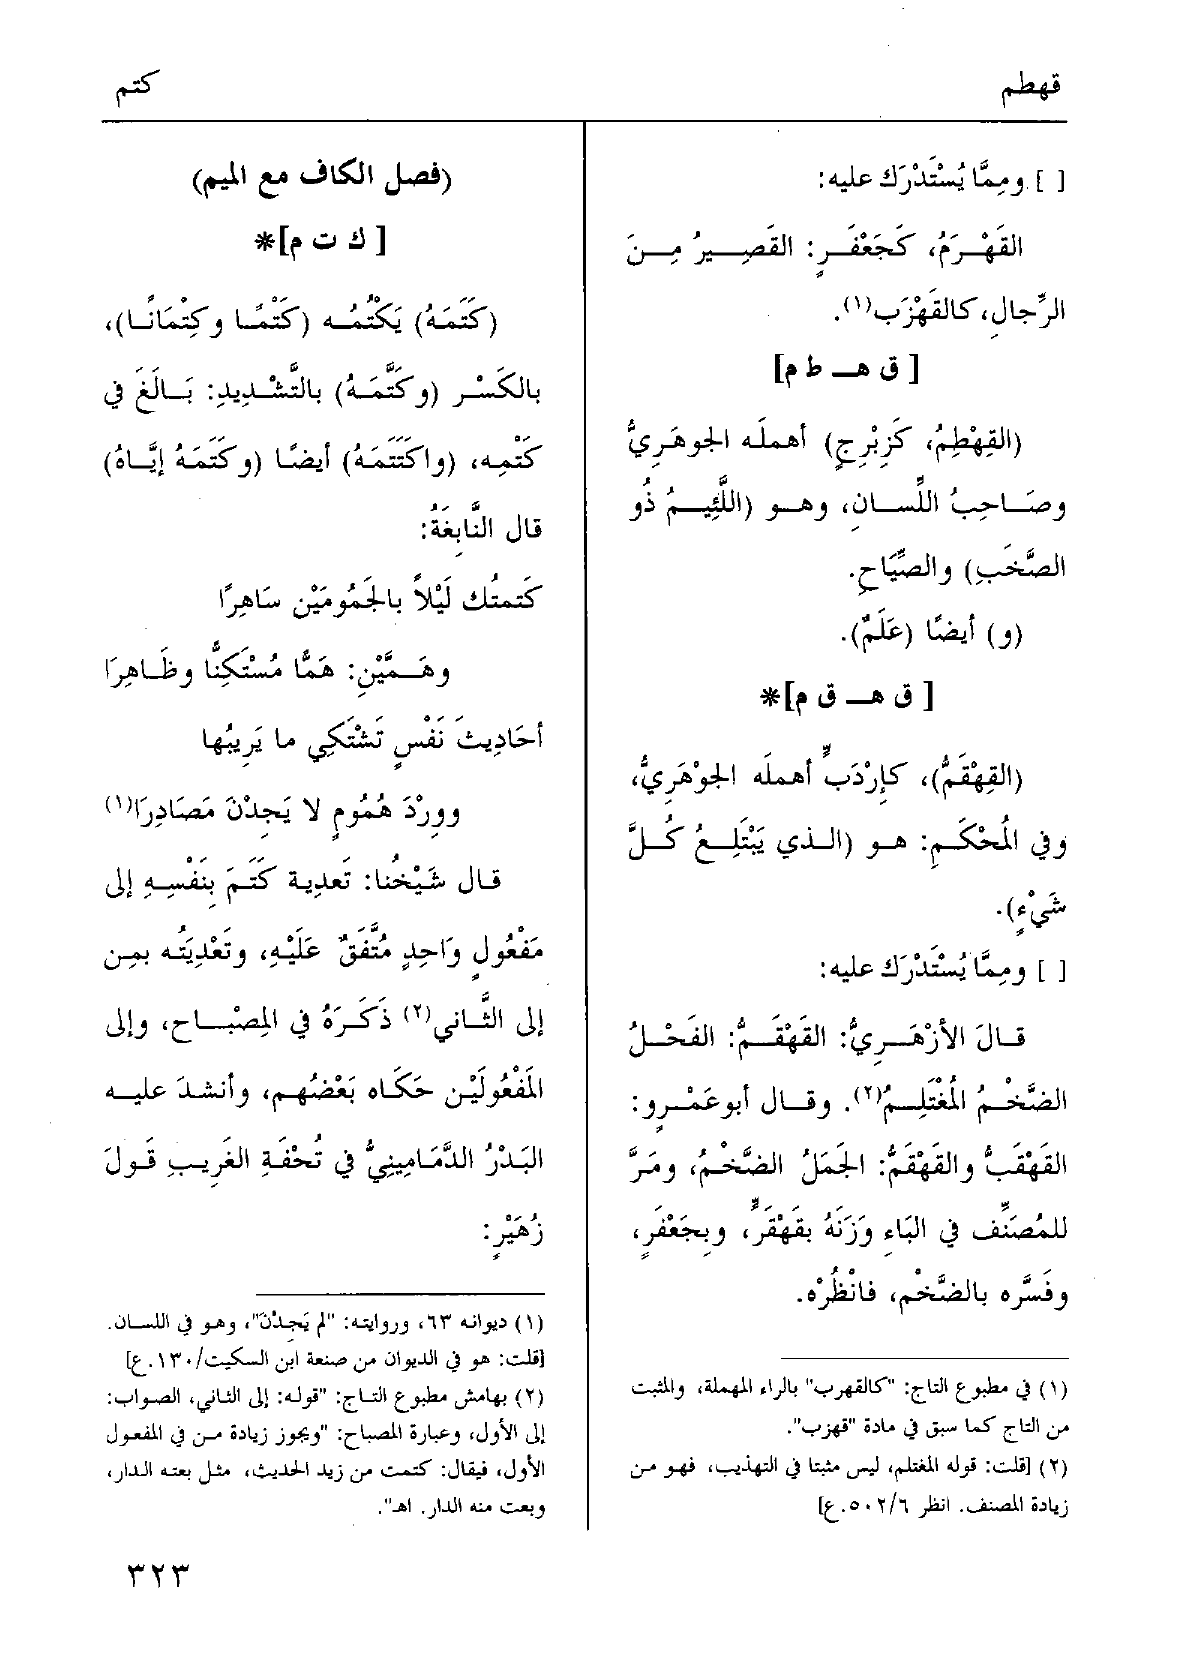 قهطم
كتم
[ ] ومِمَّا يُسْتَدْرَك عليه:
القَهْرَمُ، كَجَعْفَرٍ: القَصِيرُ مِنَ
الرِّجالِ، كالقَهْزَب(١).
[ ق هـ ط م]
(القِهْطِمُ، كَزِبْرِجٍ) أهمله الجوهَرِيُّ
وصَاحِبُ اللِّسانِ، وهو (اللَّئِيمُ ذُو
الصَّخَبِ) والصِّيَاحِ.
(و) أيضًا (عَلَمٌ).
[ ق هـ ق م]*
(القِهْقَمُّ)، كإِرْدَبٍّ أهمله الجوْهَرِيُّ،
وفي المُحْكَمِ: هو (الذي يَبْتَلِعُ كُلَّ
شَيْءٍ).
[ ] ومِمَّا يُسْتَدْرَك عليه:
قالَ الأزْهَرِيُّ: القَهْقَمُّ: الفَحْلُ
الضَّخْمُ المُغْتَلِمُ(٢). وقال أبوعَمْرٍو:
القَهْقَبُّ والقَهْقَمُّ: الجَمَلُ الضَّخْمُ، ومَرَّ
للمُصَنِّف في البَاءِ وَزَنَهُ بقَهْقَرٍّ، وبِجَعْفَرٍ،
وفَسَّره بالضَّخْم، فانْظُرْه.
(١) في مطبوع التاج: "كالقهرب" بالراء المهملة، والمثبت
من التاج كما سبق في مادة "قهزب".
(٢) [قلت: قوله المغتلم، ليس مثبتا في التهذيب، فهو من
زيادة المصنف. انظر ٥٠٢/٦.ع]
(فصل الكاف مع الميم)
[ ك ت م]*
(كَتَمَهُ) يَكْتُمُه (كَتْمًا وكِتْمَانًا)،
بالكَسْر (وكَتَّمَهُ) بالتَّشْدِيدِ: بَالَغَ في
كَتْمِه، (واكتَتَمَهُ) أيضًا (وكَتَمَهُ إيَّاهُ)
قال النَّابِغَةُ:
كَتمتُك لَيْلاً بالجَمُومَيْن سَاهِرًا
وهَمَّيْنِ: هَمًّا مُسْتَكِنًّا وظَاهِرَا
أحَادِيثَ نَفْسٍ تَشْتَكِي ما يَرِيبُها
ووِرْدَ هُمُومٍ لا يَجِدْنَ مَصَادِرَا(١)
قال شَيْخُنا: تَعدِية كَتَمَ بِنَفْسِهِ إلى
مَفْعُولٍ وَاحِدٍ مُتَّفَقٌ عَلَيْهِ، وتَعْدِيَتُه بمِن
إلى الثَّاني(٢) ذَكَرَهُ في المِصْبَاح، وإلى
المَفْعُولَيْن حَكَاه بَعْضُهم، وأنشدَ عليه
البَدْرُ الدَّمَامِينِيُّ في تُحْفَةِ الغَرِيبِ قَولَ
زُهَيْرٍ:
(١) ديوانه ٦٣، وروايته: "لم يَجِدْنَ"، وهو في اللسان.
[قلت: هو في الديوان من صنعة ابن السكيت/١٣٠.ع]
(٢) بهامش مطبوع التاج: "قوله: إلى الثاني، الصواب:
إلى الأول، وعبارة المصباح: "ويجوز زيادة من في المفعول
الأول، فيقال: كتمت من زيد الحديث، مثل بعته الدار،
وبعت منه الدار. اهـ".
٣٢٣